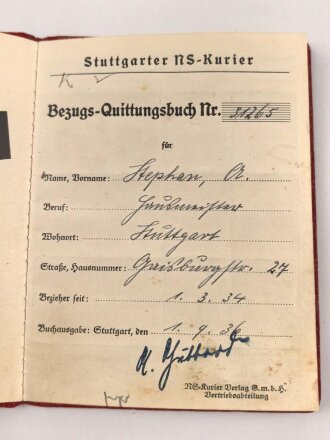 Stuttgarter NS-Kurier
Bezugs-Quittungsbuch Nr. 31265
für
Name, Vorname: Stephan, A.
Beruf: Hausmeister
Wohnort: Stuttgart
Straße, Hausnummer: Gaisburgstr. 27
Bezieher seit: 1. 3. 34
Buchausgabe: Stuttgart, den 1. 9. 36
NS-Kurier Verlag G.m.b.H.
Vertriebsabteilung